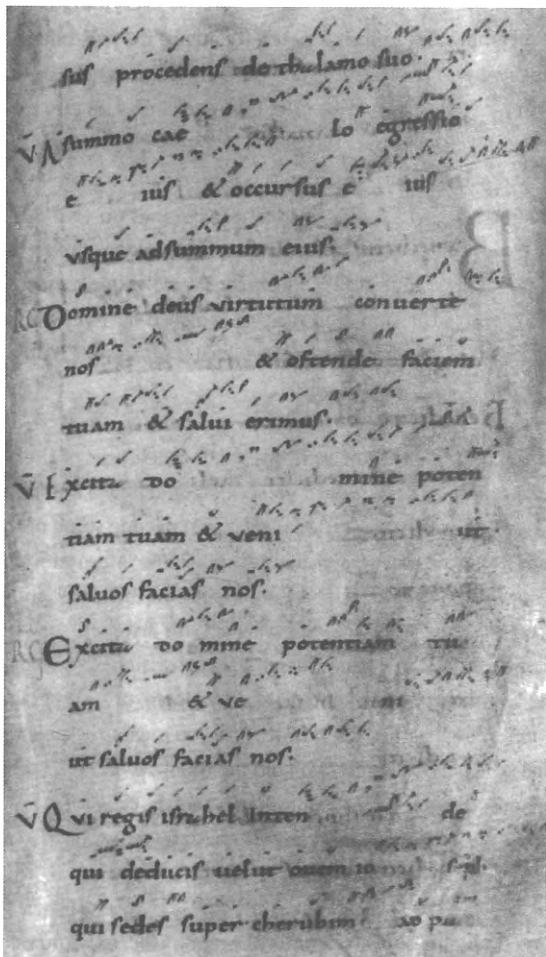 sus procedens de thalamo suo.
V A summo cae lo egressio
e ius & occursus e ius
usque adsummum eius.
RG Domine deus virtutum converte
nos & ostende faciem
tuam & salui erimus.
V Excita do mine poten
tiam tuam & veni ut
saluos facias nos.
RG Excita do mine potentiam tu
am & ve ni
ut saluos facias nos.
V Qui regis israhel Inten de
qui deducis uelut ouem io
qui sedes super cherubim